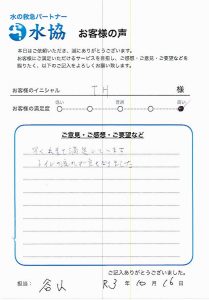 水の救急パートナー
水協 お客様の声
本日はご依頼いただき、誠にありがとうございます。
お客様にご満足いただけるサービスを目指し、ご感想・ご意見・ご要望などを
賜りたく、以下のご記入をよろしくお願い致します。
お客様のイニシャル T.H 様
お客様の満足度 低い 普通 高い
ご意見・ご感想・ご要望など
満足しています
トイレの流れが良くなりました
ご記入ありがとうございました。
担当: R3年10月16日